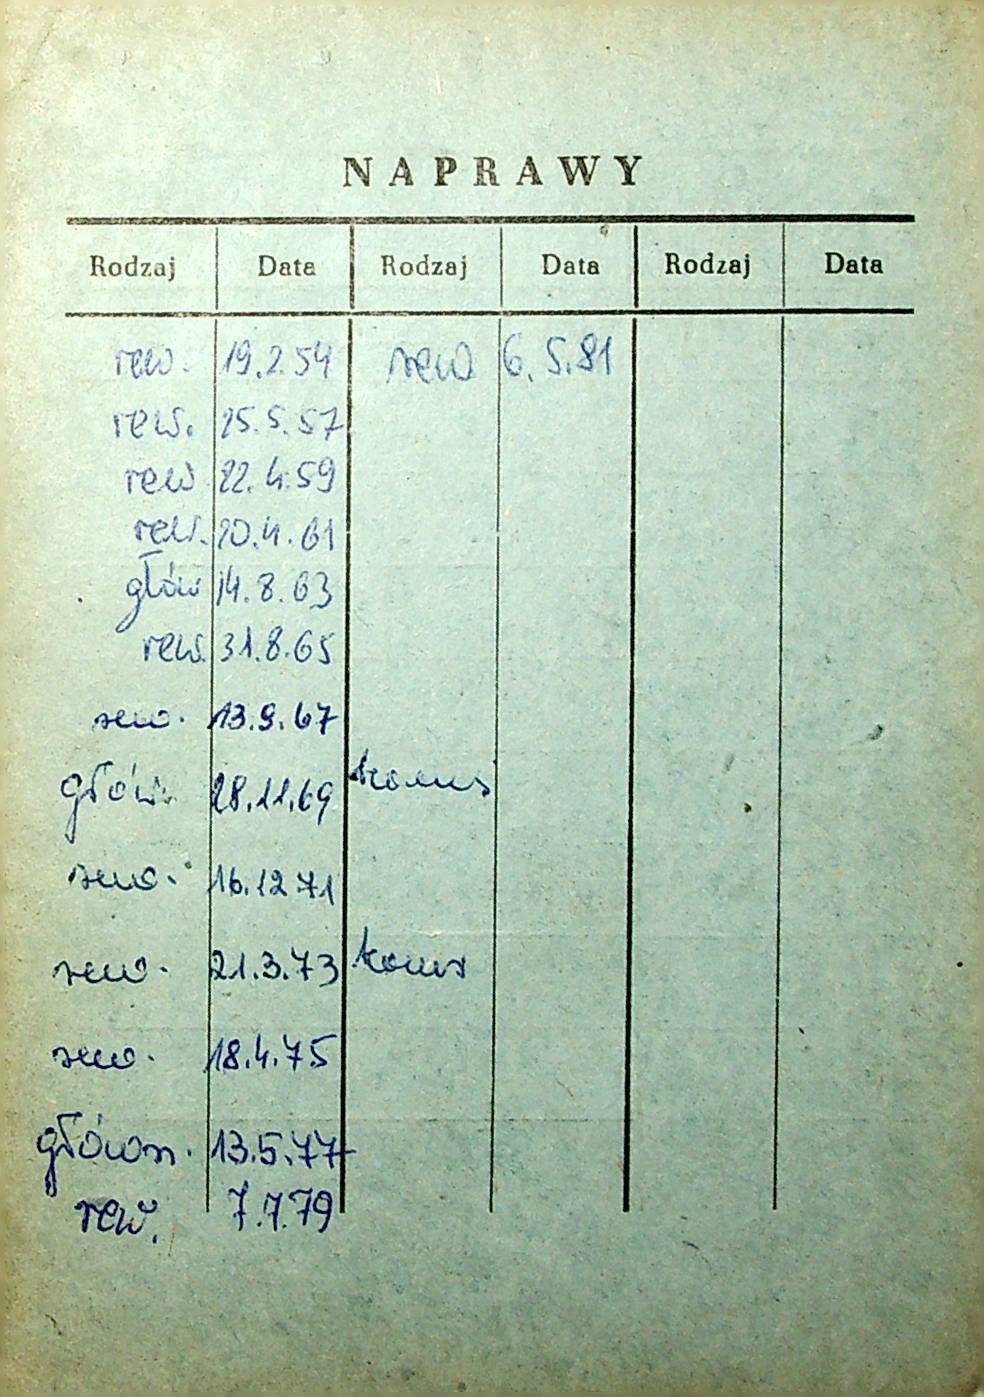 NAPRAWY
Rodzaj Data Rodzaj Data Rodzaj Data
rew. 19.2.54 rew 6.5.81
rew. 25.5.57
rew 22.4.59
rew. 20.4.61
głów 14.8.63
rew. 31.8.65
rew. 13.9.67
główn. 28.11.69
rew. 16.12.71
rew. 21.3.73
rew. 18.4.75
główn. 13.5.77
rew. 7.7.79